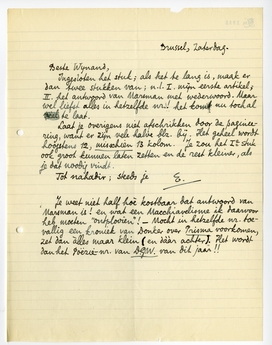 Brussel, Zaterdag.
Beste Wijnand,
Ingesloten het stuk; als het te lang is, maak er
dan twee stukken van; n.l. I. mijn eerste artikel;
II. het antwoord van Marsman met wederwoord. Maar
wel liefst alles in hetzelfde nr.! het komt nu toch al
te laat.
Laat je overigens niet afschrikken door de pagineering,
want er zijn vele halve blz. bij. Het geheel wordt
hoogstens 12, misschien 13 kolom. Je zou het Ie stuk
ook groot kunnen laten zetten en de rest kleiner, als
je dat noodig vindt.
Tot nader; steeds je E.
Je weet niet half hoe kostbaar dat antwoord van
Marsman is! en wat een Macchiavelisme ik daarvoor
heb moeten "ontplooien"! – Mocht in hetzelfde nr. toevallig
een kroniek van Donker over Prisma voorkomen,
zet dan alles maar klein (en dáár achter). Het wordt
dan het Poëzie-nr. van DGW. van dit jaar!!